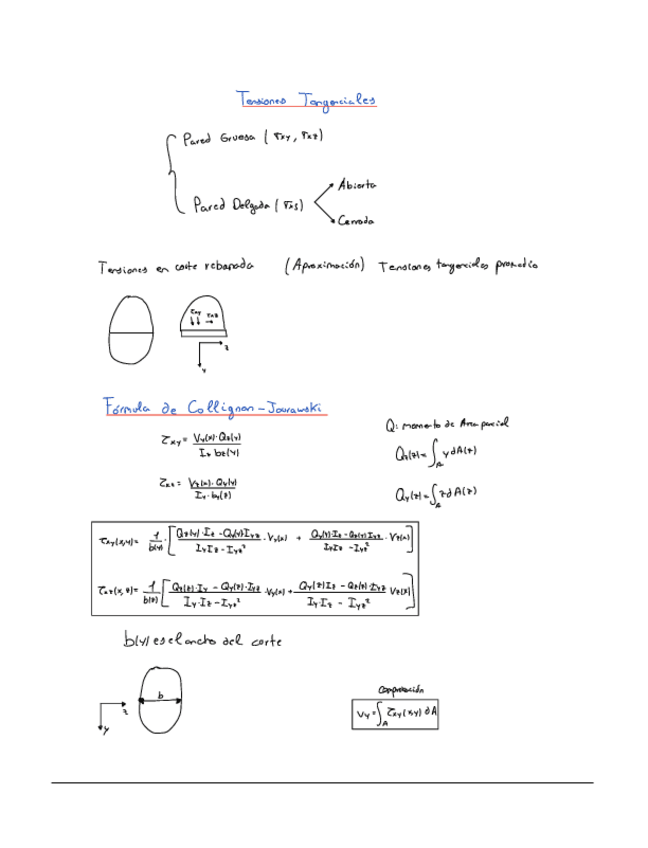 Tensiones Tangenciales
Pared Gruesa (τxy, τxz)
Pared Delgada (τxs)
Abierta
Cerrada
Tensiones en corte rebanada (Aproximación) Tensiones tangenciales promedio
τxy τxz
z
y
Fórmula de Collignon - Jourawski
Q: momento de Area parcial
τxy = Vy(x)·Qz(y) / Iz bz(y)
Qz(z) = ∫A y dA(z)
τxz = Vz(x)·Qy(y) / Iy·by(z)
Qy(z) = ∫A z dA(z)
τxy(x,y) = 1/b(y) · [ (Qz(y)·Iz - Qy(y) Iyz) / (Iy Iz - Iyz²) · Vy(x) + (Qy(y)·Iz - Qz(y) Iyz) / (Iy Iz - Iyz²) · Vz(x) ]
τxz(x,z) = 1/b(z) [ (Qz(z)·Iy - Qy(z)·Iyz) / (Iy·Iz - Iyz²) · Vy(x) + (Qy(z) Iz - Qz(z)·Iyz) / (Iy·Iz - Iyz²) Vz(x) ]
b(y) es el ancho del corte
b
z
y
Comprobación
Vy = ∫A τxy(x,y) dA